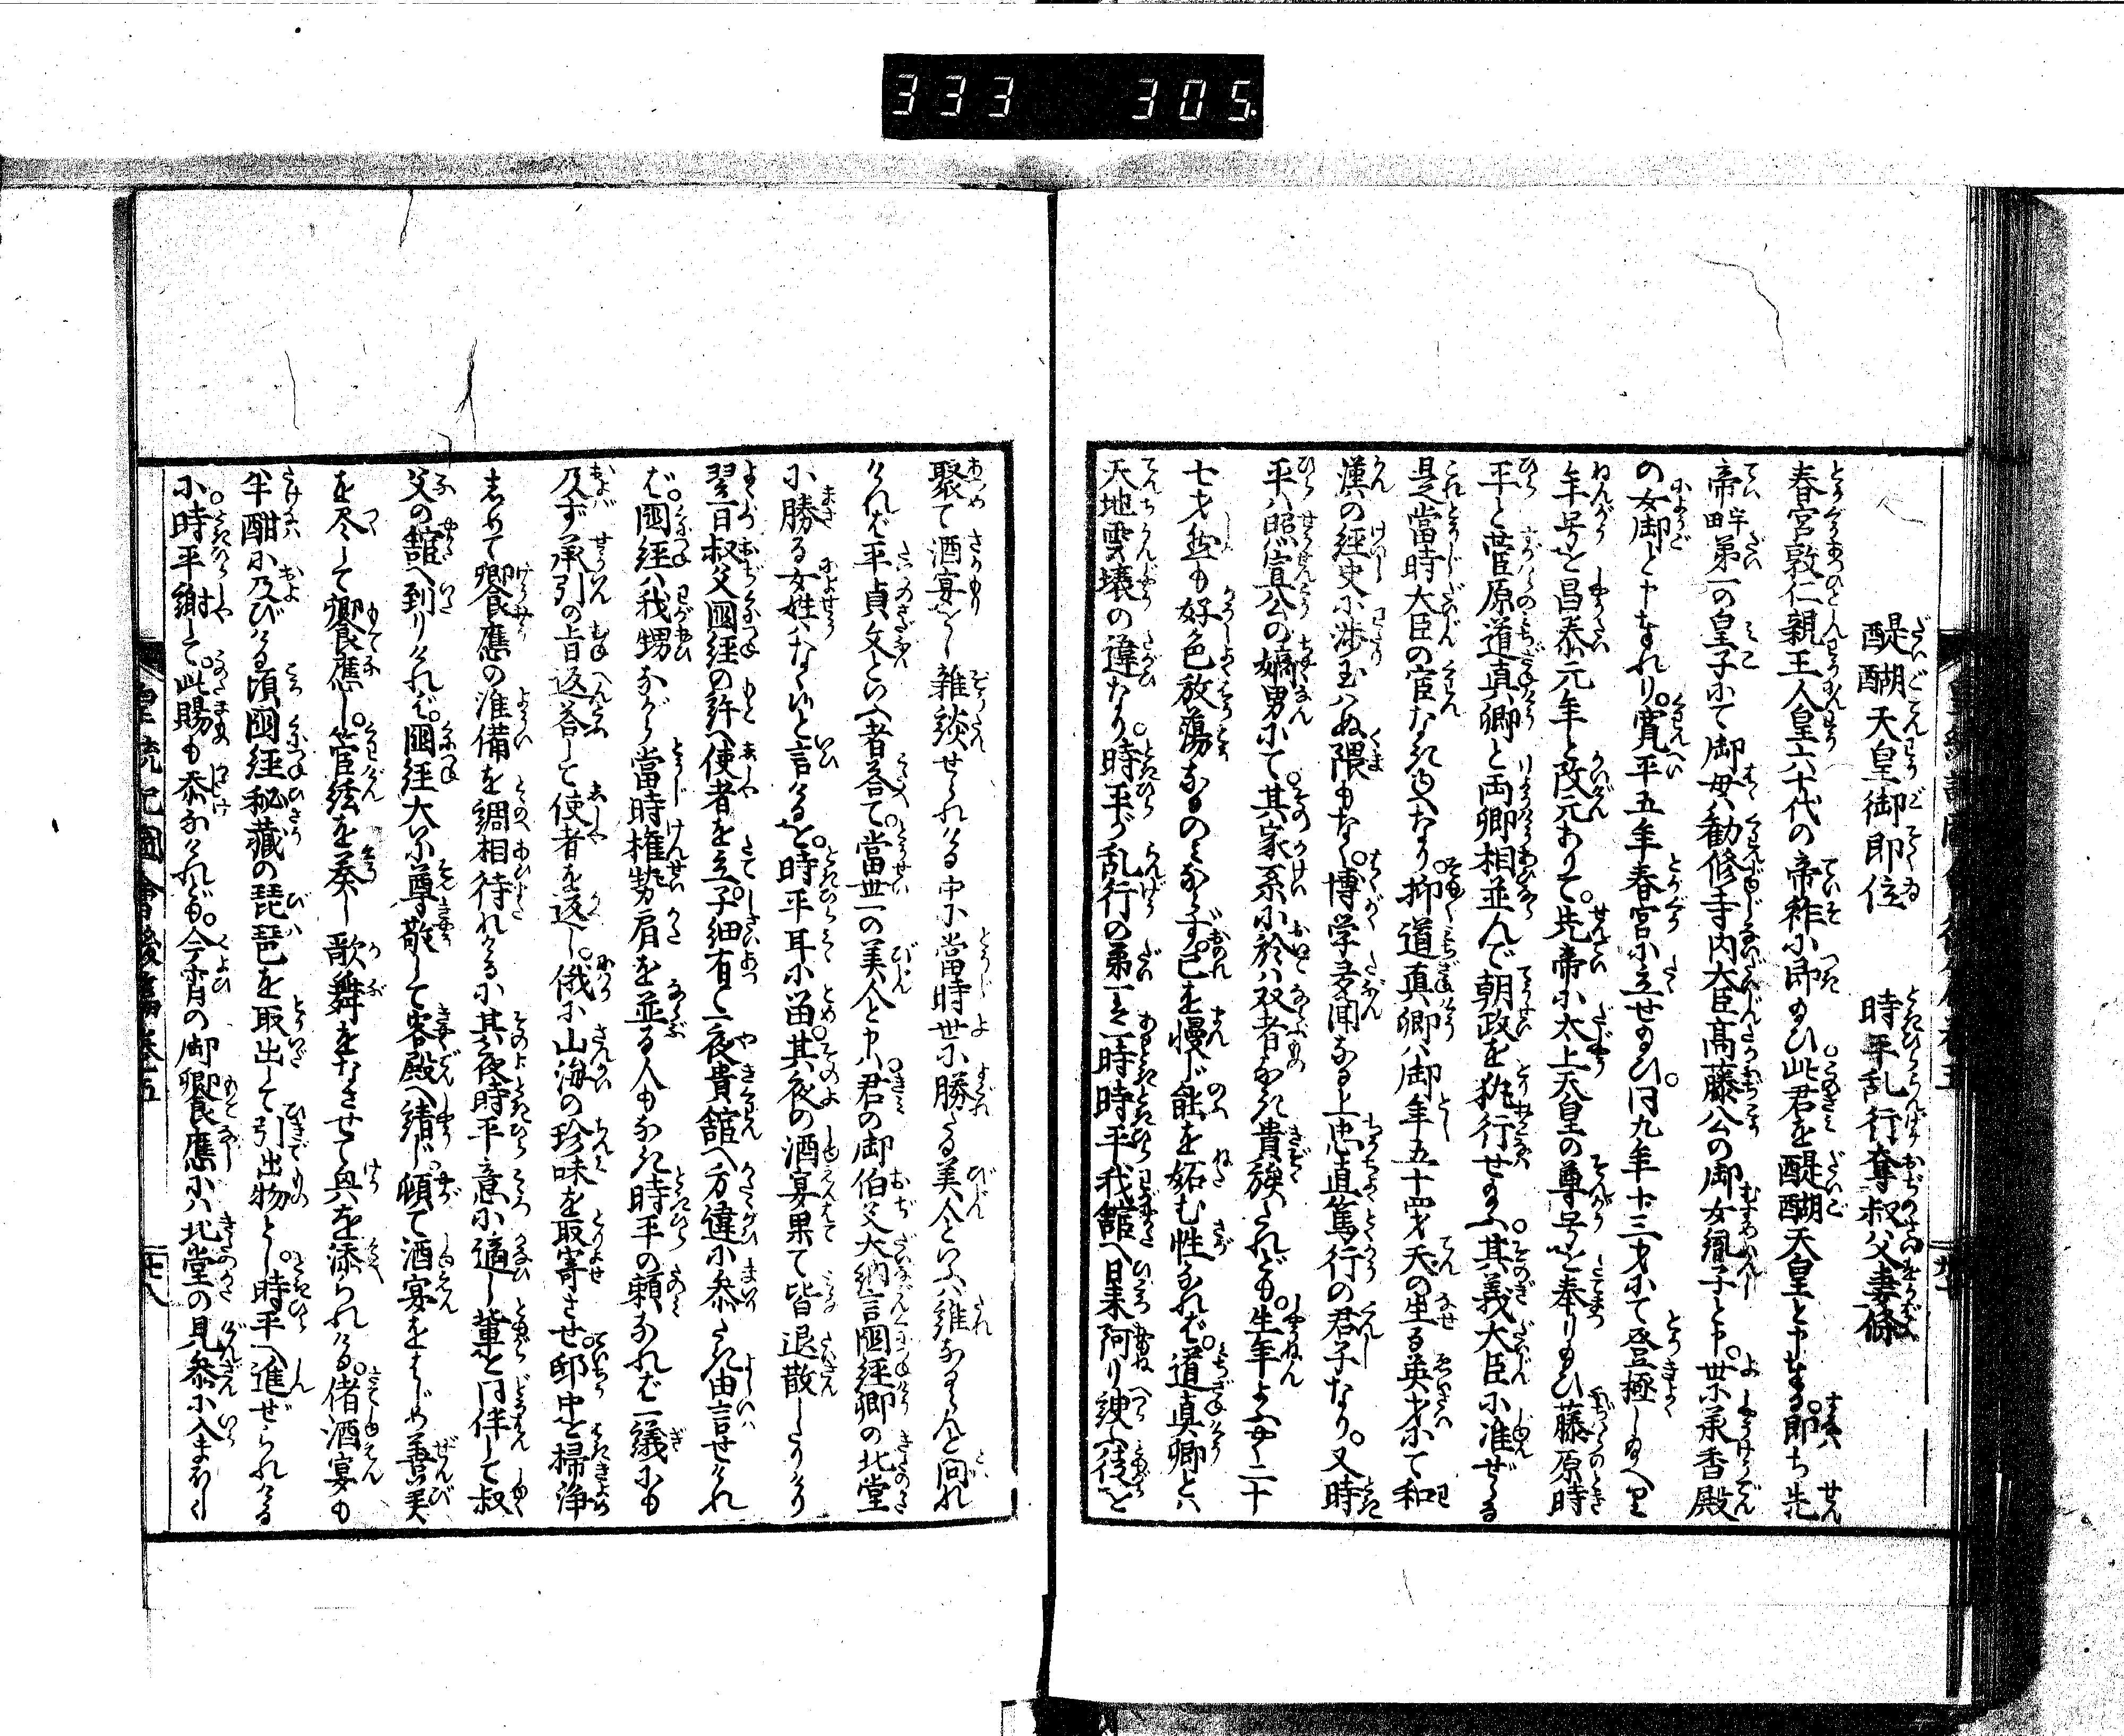 333 305.
醍醐天皇御即位 時平乱行奪叔父妻條
春宮敦仁親王人皇六十代の帝祚に即給ひ此君を醍醐天皇と申奉る即ち先
帝第一の皇子にて御母は勧修寺内大臣高藤公の御女胤子と申世に承香殿
の女御と申奉れり寛平五年春宮に立せ給ひ同九年十三才にて登極し給へり
年号を昌泰元年と改元ありて先帝に太上天皇の尊号を奉り給ひ藤原時
平と菅原道真卿と両卿相並んで朝政を執行せ給ふ其義大臣に准ぜらる
是當時大臣の官なき故なり抑道真卿は御年五十四才天の生る英才にて和
漢の経史に渉玉はぬ隈もなく博学多聞なる上忠直篤行の君子なり又時
平は照宣公の嫡男にて其家系に於は双者なき貴族されども生年二十
七才然も好色放蕩なるのみならず己を慢じ能を妬む性なれば道真卿とは
天地雲壌の違なり時平が乱行の第一を一時時平我舘へ日来阿り諛ふ徒を
聚て酒宴をし雑談せられける中に當時世に勝たる美人といふは誰ならんと問れ
ければ平貞文といふ者答て當世一の美人と申は君の御伯父大納言國經卿の北堂
に勝る女姓はなくいと言けるを時平耳に留其夜の酒宴果て皆退散したりけり
翌日叔父國經の許へ使者を立子細有て一夜貴舘へ方違に参たき由言せけれ
ば國經は我甥ながら當時権勢肩を並る人もなき時平の頼なれば一議にも
及ず承引の旨返答して使者を返し俄に山海の珍味を取寄させ邸中を掃浄
しめて饗應の准備を調相待れけるに其夜時平意に適し輩を同伴して叔
父の舘へ到りければ國經大に尊敬して客殿へ請じ頓て酒宴をはじめ善美
を尽して饗應し管絃を奏し歌舞をなさせて興を添られける偖酒宴も
半酣に及びける頃國経秘藏の琵琶を取出して引出物とし時平へ進ぜられける
に時平謝して此賜も忝なけれども今宵の御饗應には北堂の見参に入まほしく
皇統記圖會後編巻五 廿八